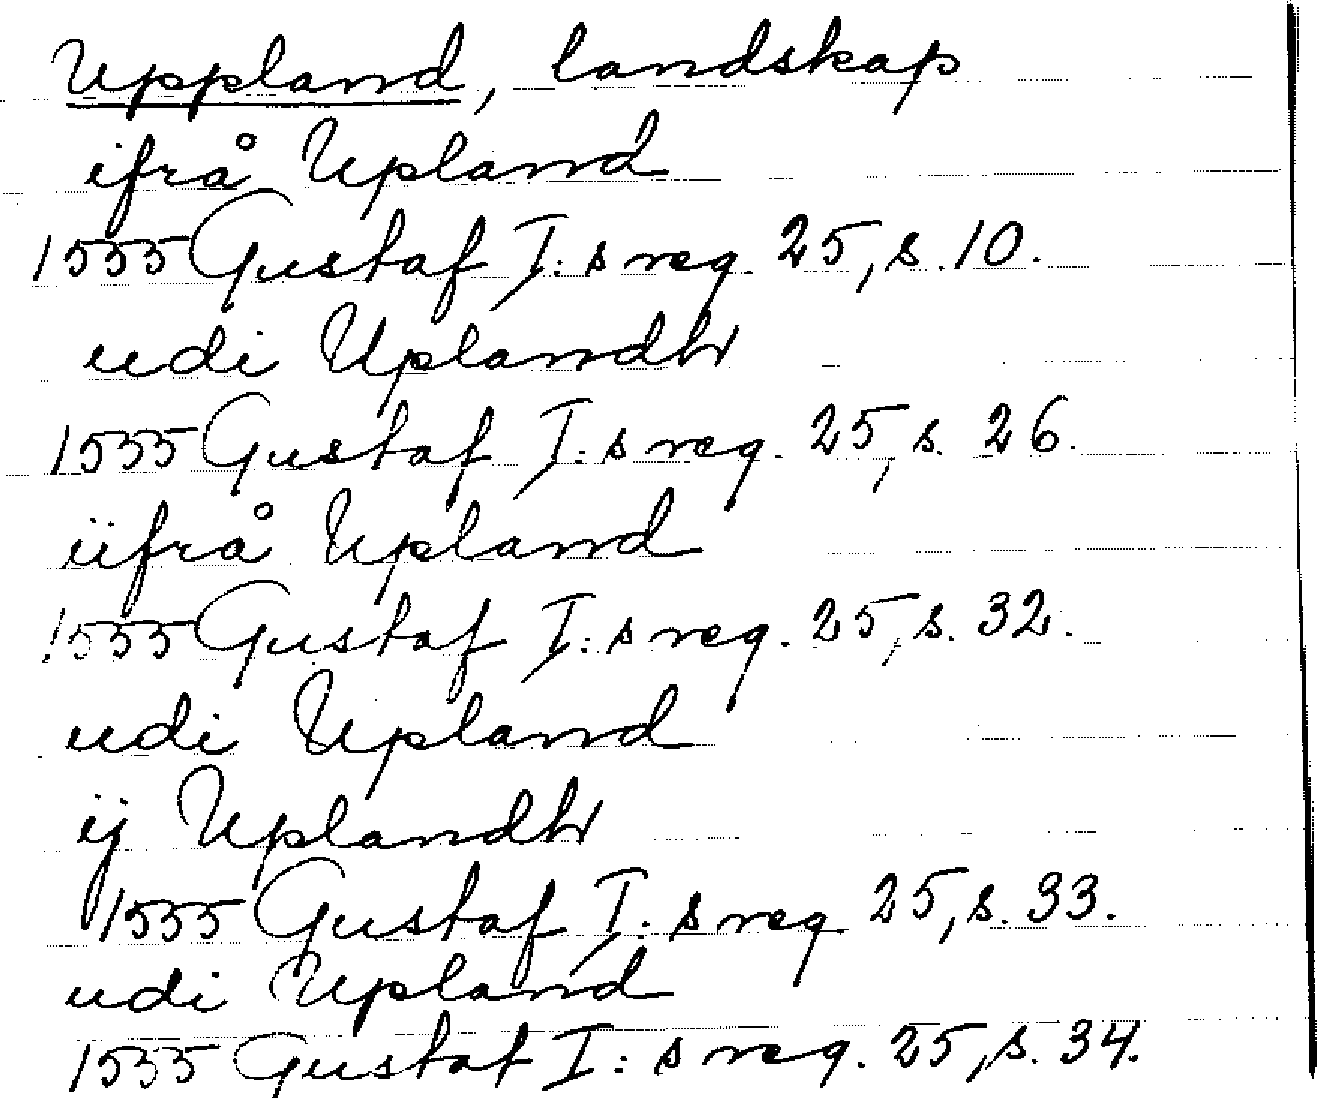 Uppland, landskap
ifrå Upland
1555 Gustaf I:s reg. 25, s. 10.
udi Uplandh
1555 Gustaf I:s reg. 25, s. 26.
iifrå Upland
1555 Gustaf I:s reg. 25, s. 32.
udi Upland
ij Uplandh
1555 Gustaf I:s reg 25, s. 33.
udi Upland
1555 Gustaf I:s reg. 25, s. 34.